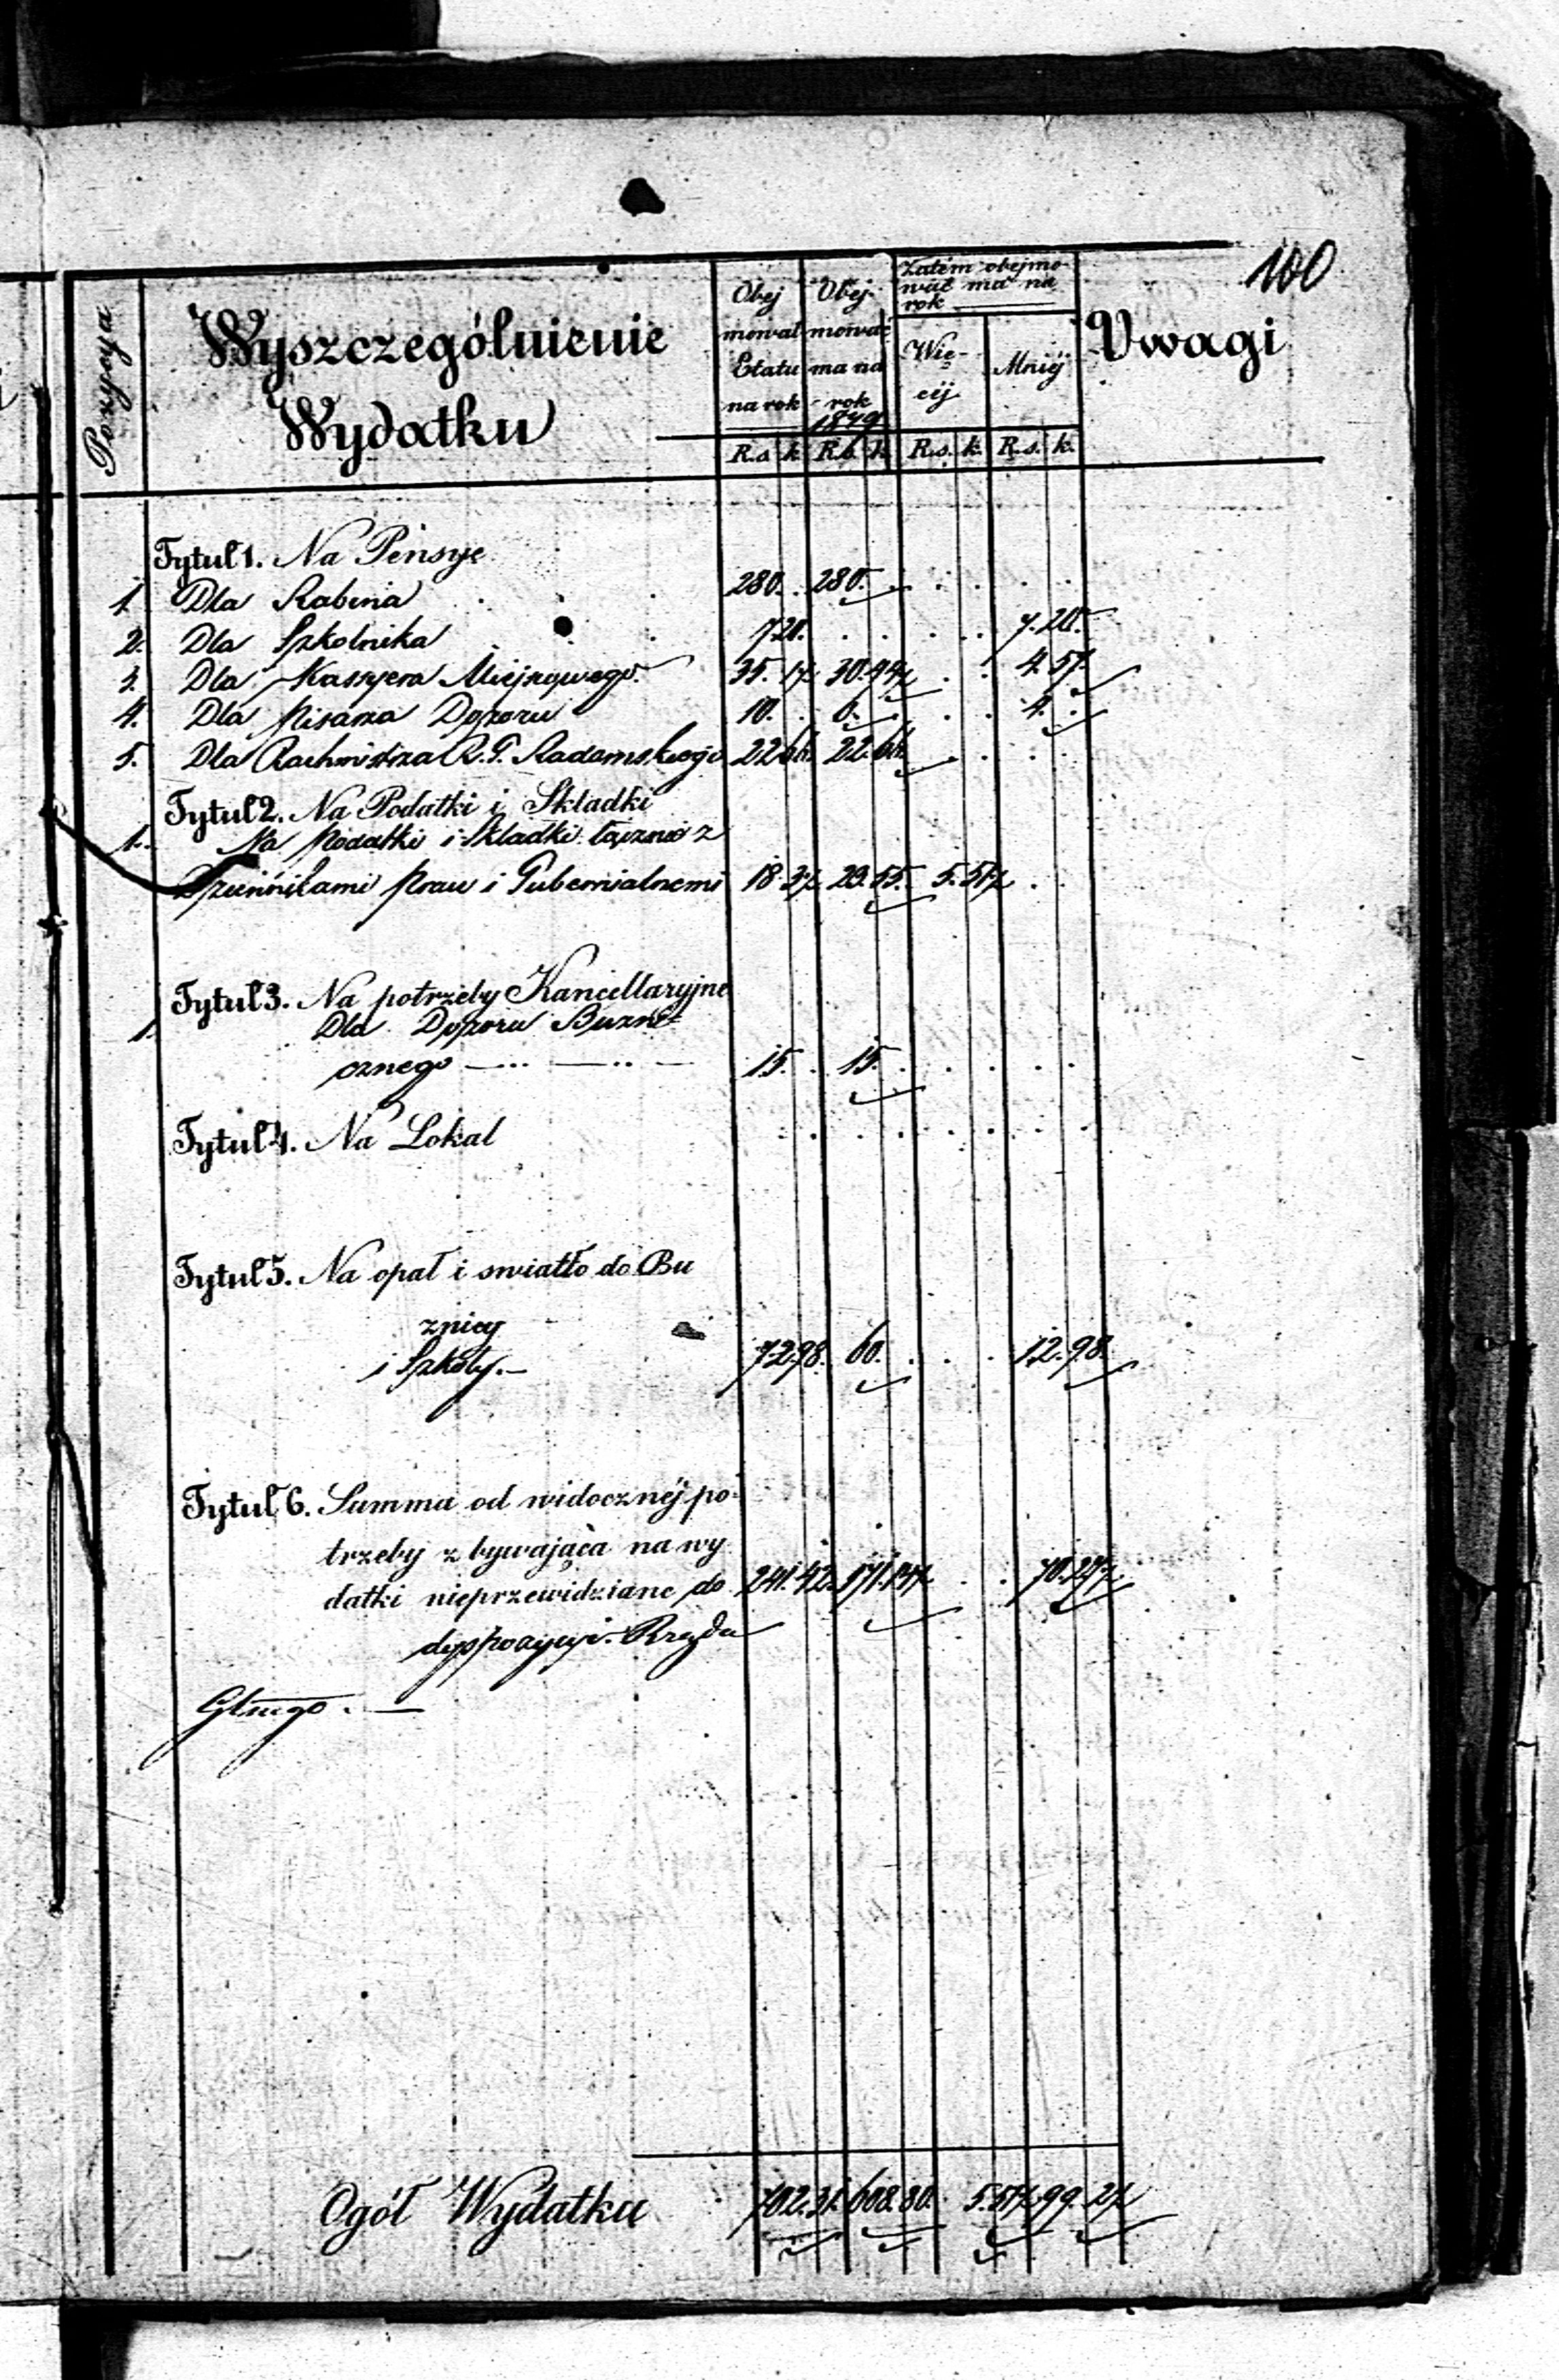 100
Pozycya
Wyszczególnienie
Wydatku
Obej
mował
Etatu
na rok
Obej-
mować
ma na
rok
1849
Zatém obejmo-
wać ma na
rok
Wię-
céj
Mniéj
Uwagi
R.s. k. R.s. k. R.s. k. R.s. k.
Tytuł 1. Na Pensye
1. Dla Rabina 280. . 280. . . . . .
2. Dla Szkolnika 7.20. . . . . 7.20.
3. Dla Kassyera Miejscowego 35. 1½ 30.44½ . . 4.57.
4. Dla Pisarza Dozoru 10. . 6. . . . 4. .
5. Dla Rachmistrza R. G. Radomskiego 22.66. 22.66. . . . .
Tytuł 2. Na Podatki i Składki
1. Na Podatki i Składki łącznie z
Dziennikami Praw i Gubernialnemi 18. 3½ 23.55. 5.51½ . .
Tytuł 3. Na potrzeby Kancellaryjne
1. Dla Dozoru Buzni-
cznego 15. . 15. . . . . .
Tytuł 4. Na Lokal
Tytuł 5. Na opał i swiatło do Bu
znicy
i Szkoły.— 72.98. 60. . . . 12.98.
Tytuł 6. Summa od widocznéj po-
trzeby zbywająca na wy
datki nieprzewidziane do 241.42. 171.14½ . . 70.27½
dyspozycyi Rządu
Głnego. —
Ogół Wydatku 702.31. 608.80. 5.51½ 99. 2½